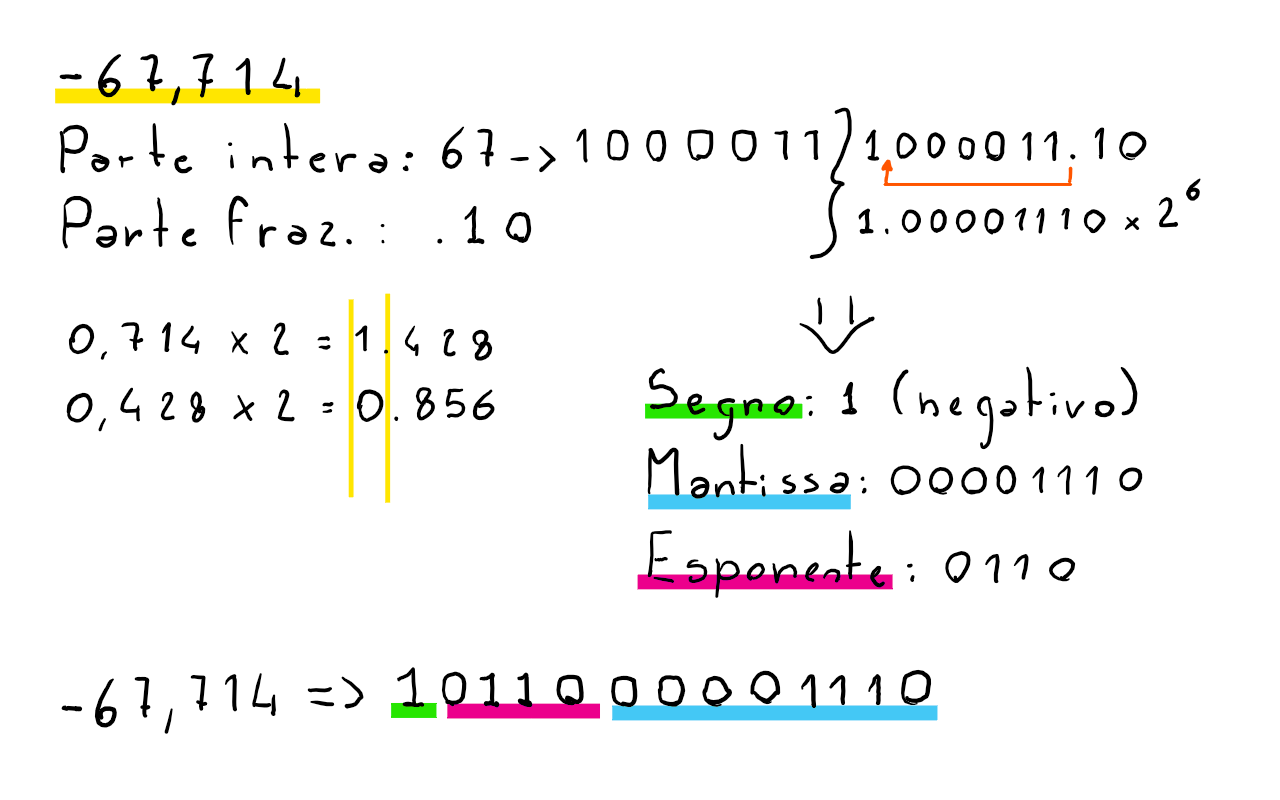 -67,714
Parte intera: 67 -> 1000011
Parte fraz. : .10
1000011.10
1.00001110 x 2⁶
0,714 x 2 = 1.428
0,428 x 2 = 0.856
Segno: 1 (negativo)
Mantissa: 00001110
Esponente: 0110
-67,714 => 1011000001110